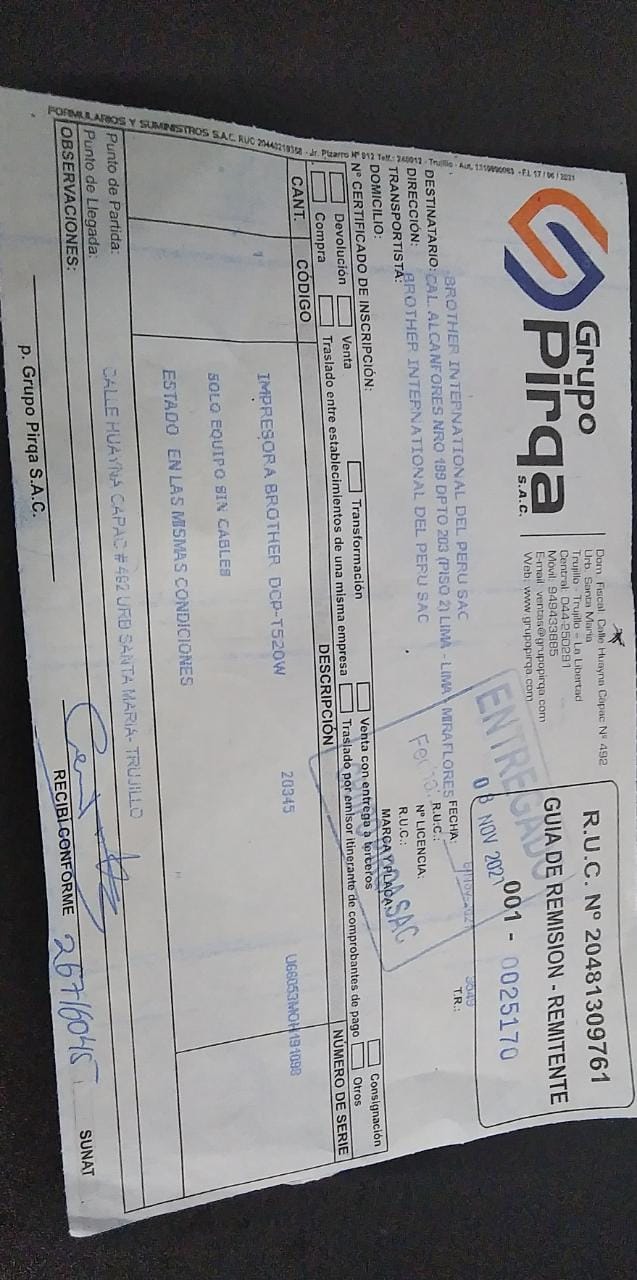 Grupo
Pirqa
S.A.C.
Dom. Fiscal: Calle Huayna Capac Nº 492
Urb. Santa María
Trujillo - Trujillo - La Libertad
Central: 044-250291
Móvil: 949433885
E-mail: ventas@grupopirqa.com
Web: www.grupopirqa.com
R.U.C. Nº 20481309761
GUIA DE REMISION - REMITENTE
001 - 0025170
ENTREGADO
03 NOV 2021
DESTINATARIO: BROTHER INTERNATIONAL DEL PERU SAC
DIRECCIÓN: CAL. ALCANFORES NRO 199 DPTO 203 (PISO 2) LIMA - LIMA - MIRAFLORES
TRANSPORTISTA: BROTHER INTERNATIONAL DEL PERU SAC
DOMICILIO:
Nº CERTIFICADO DE INSCRIPCIÓN:
FECHA:
R.U.C.:
Nº LICENCIA:
R.U.C.:
MARCA Y PLACA:
T.R.:
Devolución
Venta
Transformación
Venta con entrega a terceros
Consignación
Compra
Traslado entre establecimientos de una misma empresa
Traslado por emisor itinerante de comprobantes de pago
Otros
CANT.
CÓDIGO
DESCRIPCIÓN
NÚMERO DE SERIE
1
IMPRESORA BROTHER DCP-T520W
20345
U66053MOH191098
SOLO EQUIPO SIN CABLES
ESTADO EN LAS MISMAS CONDICIONES
Punto de Partida:
CALLE HUAYNA CAPAC # 492 URB SANTA MARIA- TRUJILLO
Punto de Llegada:
OBSERVACIONES:
p. Grupo Pirqa S.A.C.
RECIBI CONFORME
26716045
SUNAT
FORMULARIOS Y SUMINISTROS S.A.C. RUC 20440219358 - Jr. Pizarro Nº 912 Telf.: 248012 - Trujillo - Aut. 1319990063 - F.I. 17 / 06 / 2021